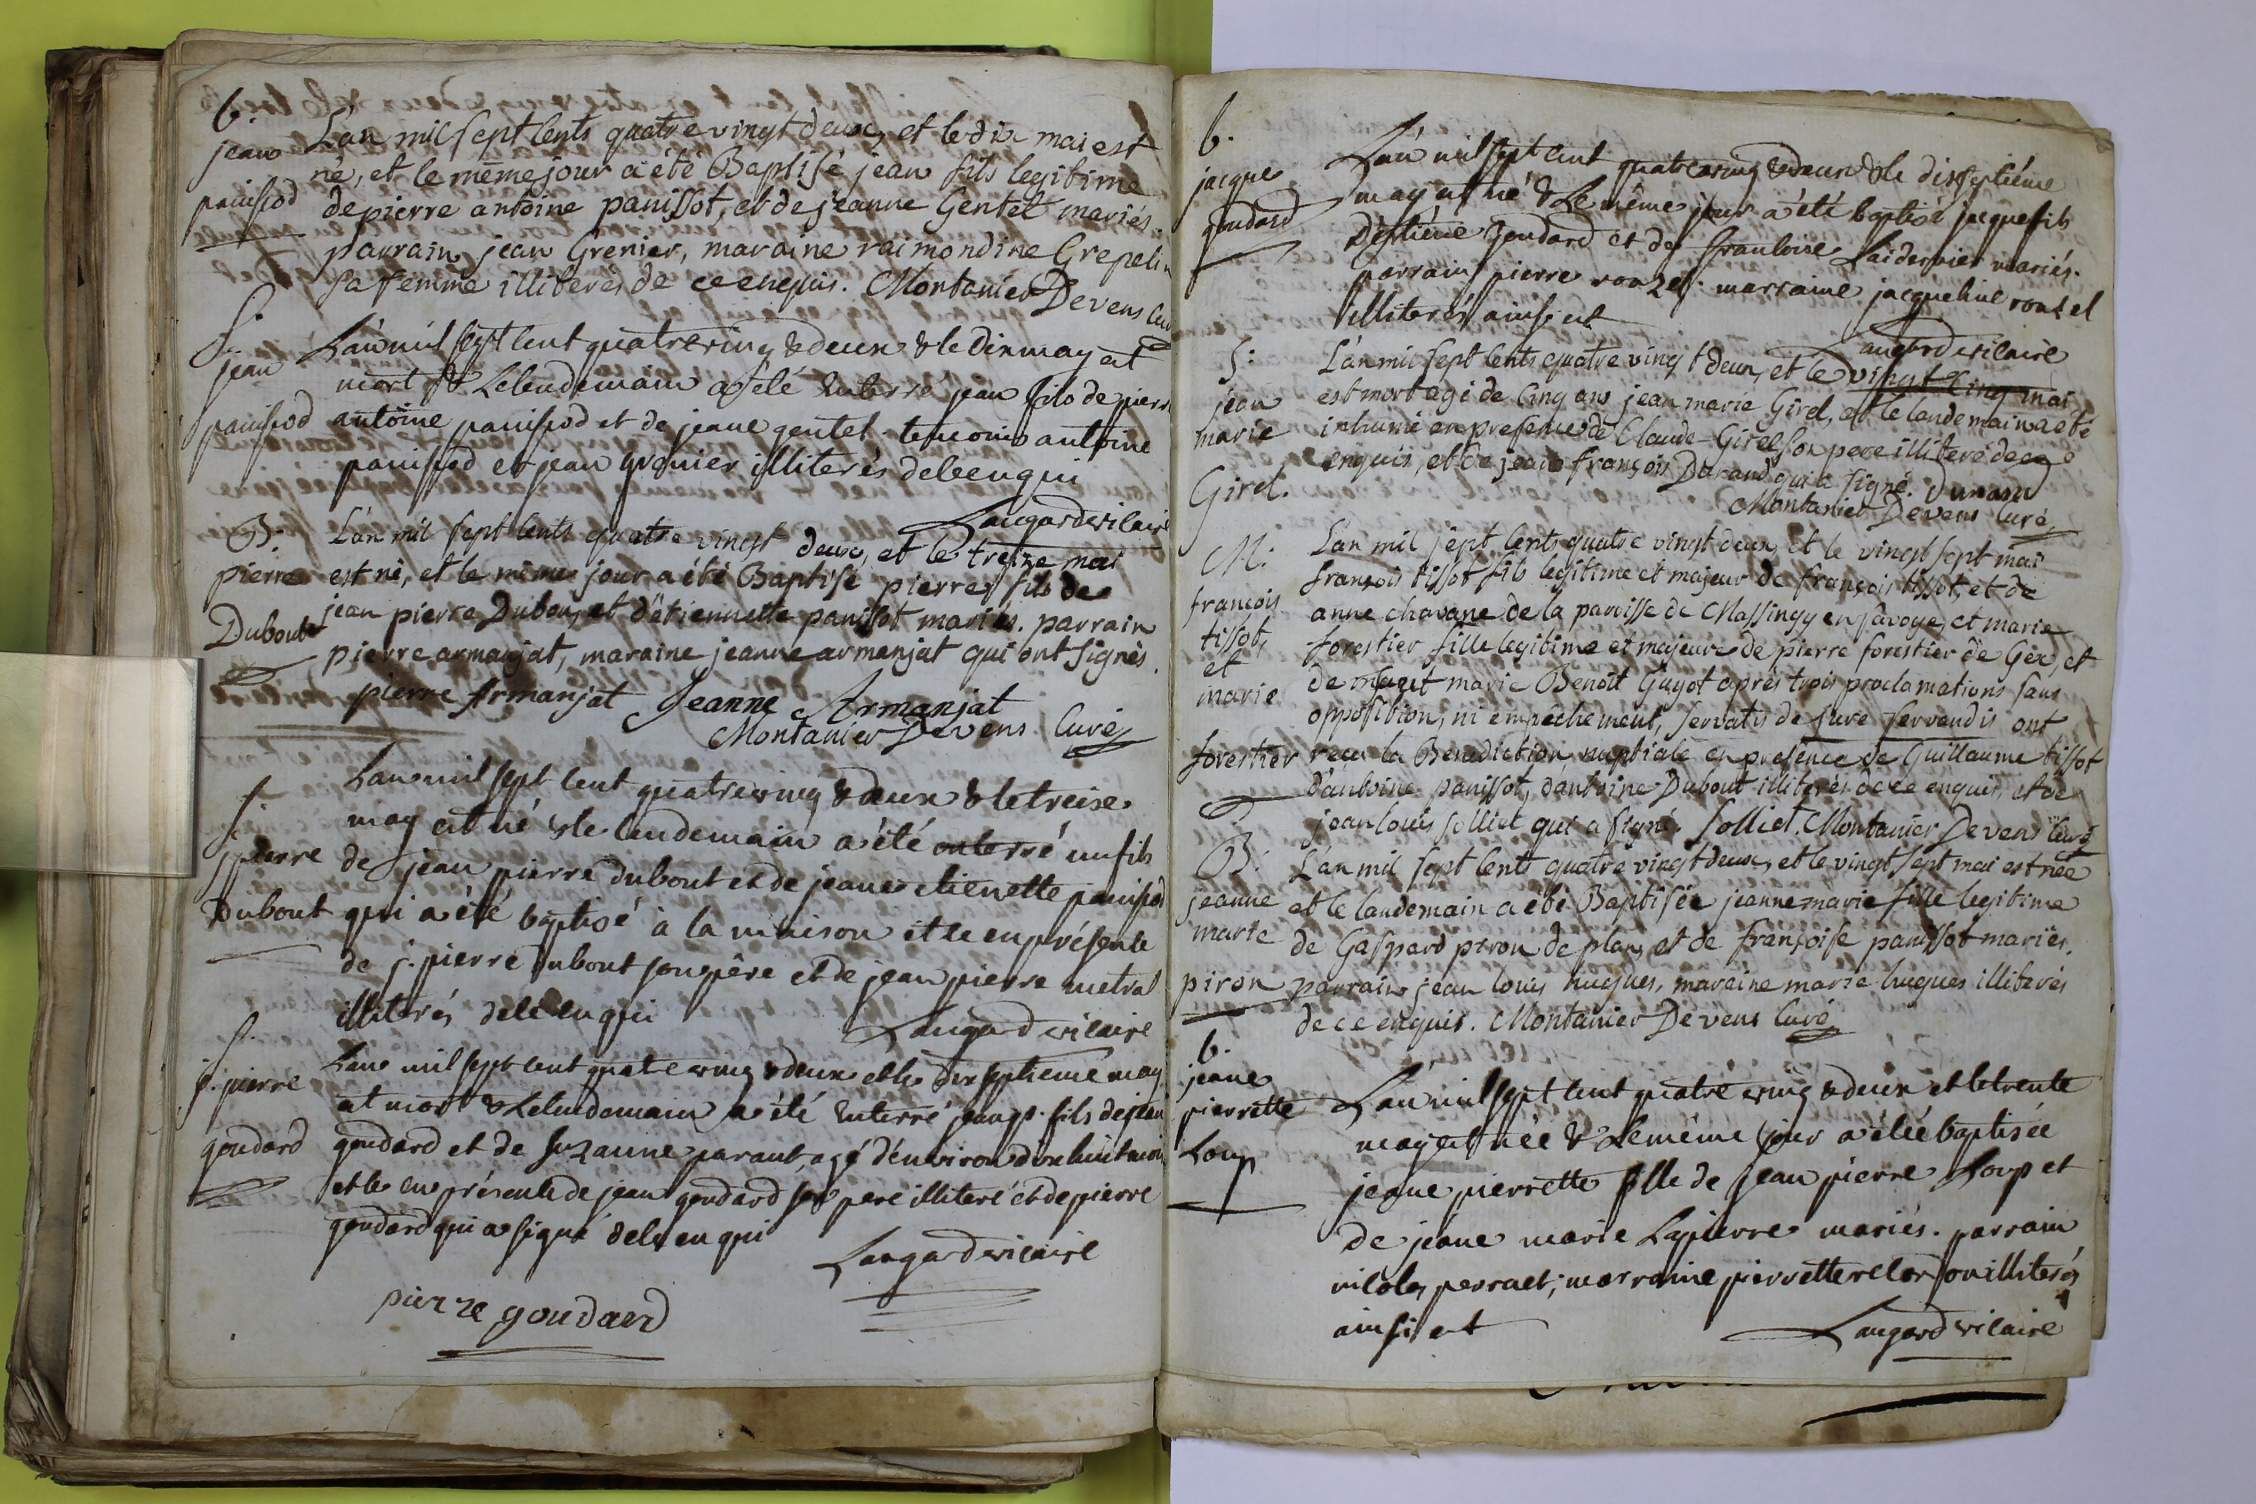 b.
jean
panissod
L'an mil sept cents quatre vingt deux, et le dix mai est
né, et le même jour a été Baptisé jean fils legitime
de pierre antoine panissot, et de jeanne Gentet mariés.
parrain jean Grenier, maraine raimondine Grepelin
sa femme illiterés de ce enquis. Montanier Devens curé
S.
jean
panissod
L'an mil sept cent quatreving & deux & le dix may est
mort & Le lendemain a été Enterré jean fils de pierre
antoine panissod et de jeane gentet. temoins antoine
panissod et jean grenier illiterés de ce enqui
Laugard vicaire
B.
pierre
Dubout
L'an mil sept cents quatre vingt deux, et le treize mai
est né, et le même jour a été Baptisé pierre fils de
jean pierre Dubout, et d'étiennette panissot mariés. parrain
pierre armanjat, maraine jeanne armanjat qui ont signés.
pierre Armanjat Jeanne Armanjat
Montanier Devens Curé
S.
pierre
Dubout
L'an mil sept cent quatreving & deux & le treise
may est né & le lendemain a été enterré un fils
de jean pierre dubout et de jeane etienette panissod
qui a été baptisé à la maison et ce en présence
de j. pierre dubout son père et de jean pierre metral
illiterés de ce enqui
Laugard vicaire
S.
j. pierre
goudard
L'an mil sept cent quatreving & deux et le dix septieme may
est mort & Le lendemain a été Enterré jean p. fils de jean
goudard et de Suzanne parant, agé d'environ dix huit mois
et ce en présence de jean goudard son pere illiteré et de pierre
goudard qui a signé de ce enqui
Laugard vicaire
pierre goudard
b.
jacque
goudard
L'an mil sept cent quatreving & deux & le dixseptiéme
may est né & Le même jour a été baptisé jacque fils
d'étiéne goudard et de francoise Laidernier mariés.
parrain pierre rouzet. marraine jacqueline rouzet
illiterés ainsi est
Laugard vicaire
S.
jean
marie
Girel.
L'an mil sept cents quatre vingt deux, et le vingt cinq mai
est mort agé de cinq ans jean marie Girel, et le landemain a été
inhumé en presence de Claude Girel son pere illiteré de ce
enquis, et de jean françois Durand qui a signé. Durand
Montanier Devens Curé
M.
francois
tissot,
et
marie
forestier
L'an mil sept cents quatre vingt deux, et le vingt sept mai
françois tissot fils legitime et majeur de françois tissot, et de
anne chavane de la paroisse de Massingy en savoye, et marie
forestier fille legitime et majeure de pierre forestier de Gex, et
de marie Benoit Guyot après trois proclamations sans
opposition, ni empêchement, servatis de jure servandis ont
recu la Benediction nuptiale en presence de Guillaume tissot
d'antoine panissot, d'antoine Dubout illiterés de ce enquis, et de
jean louis solliet qui a signé. Solliet. Montanier Devens curé
B.
jeanne
marie
piron
L'an mil sept cents quatre vingt deux, et le vingt sept mai est née
et le landemain a été Baptisée jeanne marie fille legitime
de Gaspard piron de plan, et de françoise panissot mariés.
parrain jean louis hugues, maraine marie hugues illiterés
de ce enquis. Montanier Devens Curé
b.
jeane
pierrette
Loup
L'an mil sept cent quatre ving & deux et le trente
may est née & Le même jour a été baptisée
jeane pierrette fille de jean pierre Loup et
de jeane marie Lapierre mariés. parrain
nicolas perraet; marraine pierrette illiterés
ainsi est
Laugard vicaire